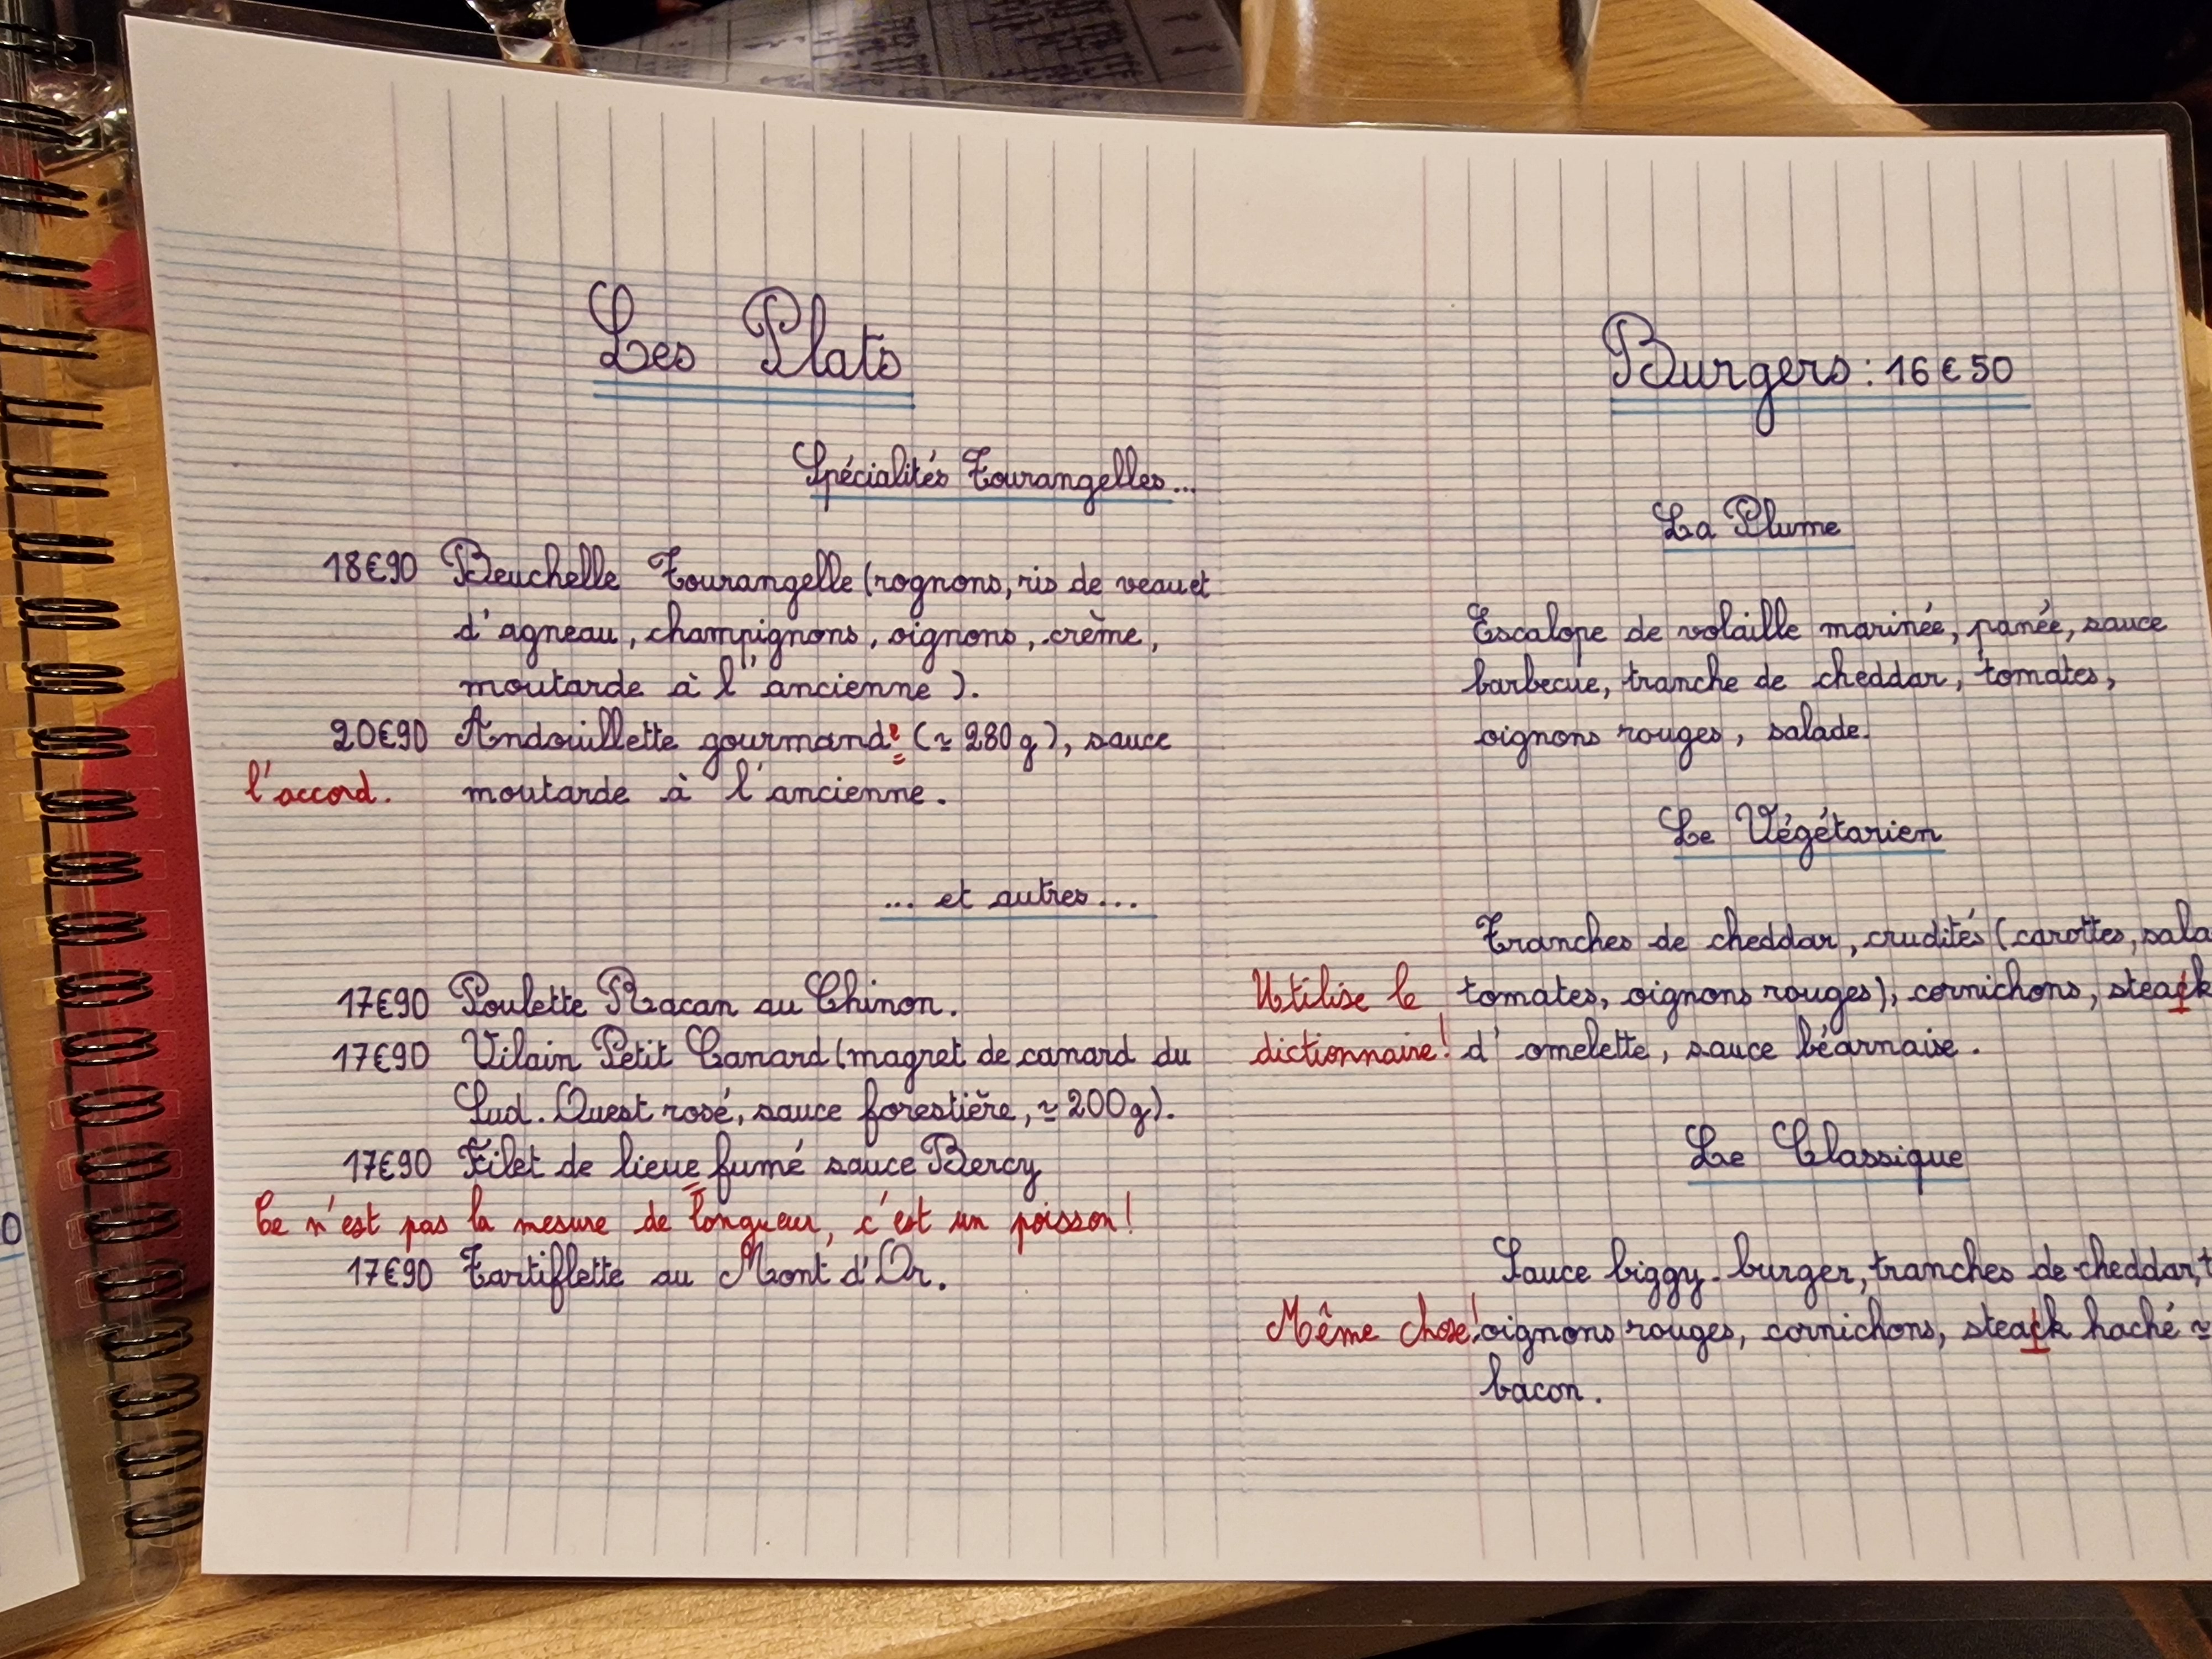 Les Plats
Spécialités Tourangelles...
18€90 Beuchelle Tourangelle (rognons, ris de veau et
d'agneau, champignons, oignons, crème,
moutarde à l'ancienne).
20€90 Andouillette gourmande (≃ 280 g), sauce
l'accord. moutarde à l'ancienne.
... et autres...
17€90 Poulette Racan au Chinon.
17€90 Vilain Petit Canard (magret de canard du
Sud-Ouest rosé, sauce forestière, ≃ 200 g).
17€90 Filet de lieue fumé sauce Bercy
Ce n'est pas la mesure de longueur, c'est un poisson!
17€90 Tartiflette au Mont d'Or.
Burgers : 16€50
La Plume
Escalope de volaille marinée, panée, sauce
barbecue, tranche de cheddar, tomates,
oignons rouges, salade.
Le Végétarien
Tranches de cheddar, crudités (carottes, sala
Utilise le tomates, oignons rouges), cornichons, steack
dictionnaire! d'omelette, sauce béarnaise.
Le Classique
Sauce biggy-burger, tranches de cheddar,
Même chose! oignons rouges, cornichons, steack haché ≃
bacon.
0